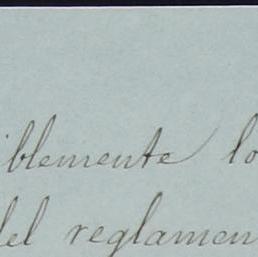 iblemente lo
del reglamen